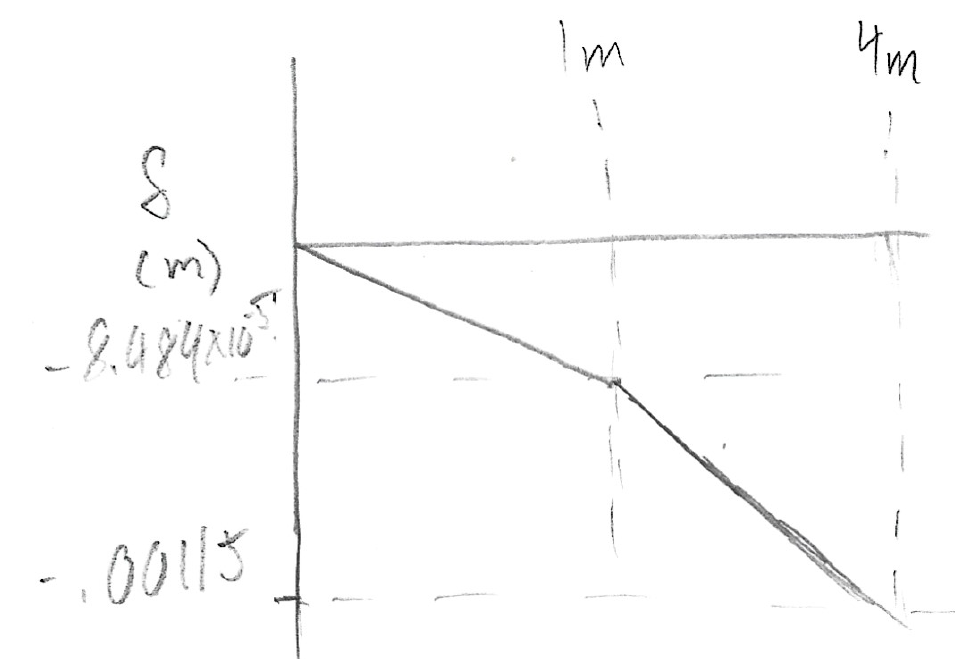 1m 4m
δ
(m)
-8.484×10⁻⁵
-.00115